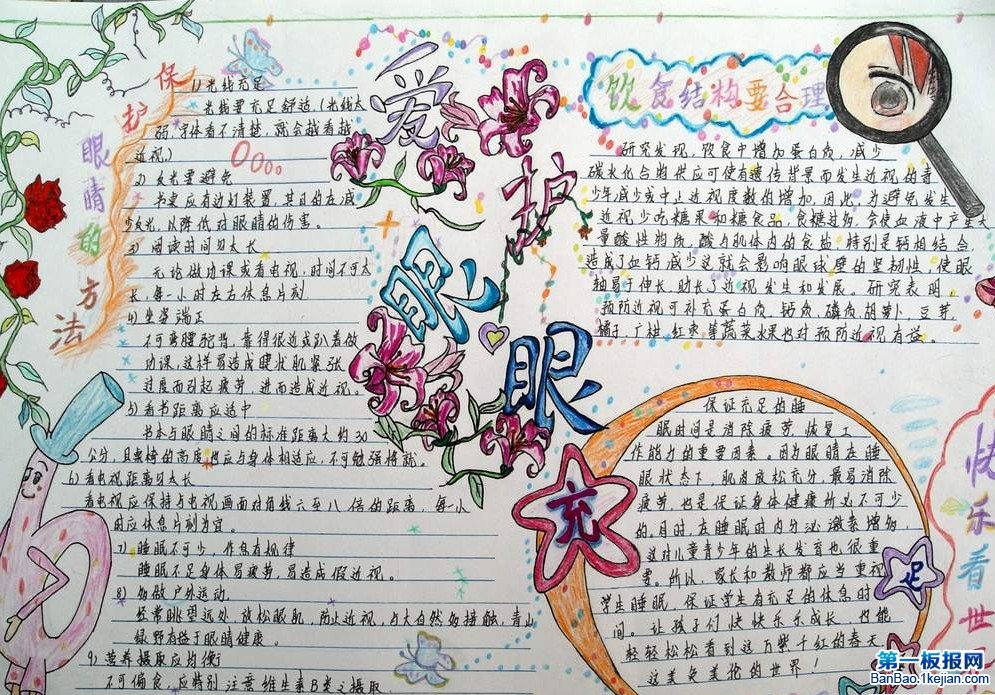 爱护眼眼
保护眼睛的方法
1) 光线充足
光线要充足舒适(光线太
弱,字体看不清楚,就会越看越
近视。)
2) 反光要避免
书桌应有边灯装置,其目的在减
少反光,以降低对眼睛的伤害。
3) 阅读时间勿太长
无论做功课或看电视,时间不可太
长,每一小时左右休息片刻
4) 坐姿端正
不可弯腰驼背,靠得很近或趴着做
功课,这样易造成睫状肌紧张
过度而引起疲劳,进而造成近视。
5) 看书距离应适中
书本与眼睛之间的标准距离大约30
公分,且桌椅的高度也应与身体相适应,不可勉强将就。
6) 看电视距离勿太长
看电视应保持与电视画面对角线六至八倍的距离,每一小
时应休息片刻为宜。
7) 睡眠不可少,作息有规律
睡眠不足身体易疲劳,易造成假近视。
8) 多做户外运动,
经常眺望远处,放松眼肌,防止近视,与大自然多接触,青山
绿野有益于眼睛健康。
9) 营养摄取应均衡
不可偏食,应特别注意维生素B类之摄取
饮食结构要合理
研究发现,饮食中增加蛋白质,减少
碳水化合物供应可使有遗传背景而发生近视的青
少年减少或中止近视度数的增加。因此,为避免发生
近视少吃糖果和糖食品。食糖过多,会使血液中产生大
量酸性物质,酸与肌体内的食盐,特别是钙相结合,
造成了血钙减少这就会影响眼球壁的坚韧性,使眼
轴易于伸长,助长了近视发生和发展。研究表明,
预防近视可补充蛋白质、钙质、磷质,胡萝卜、豆芽,
橘子、广柑,红枣等蔬菜水果也对预防近视有益
充足
保证充足的睡
眠时间是消除疲劳恢复工
作能力的重要因素。因为眼睛在睡
眠状态下,肌肉放松充分,最易消除
疲劳,也是保证身体健康所必不可少
的。同时,在睡眠时内分泌激素增多,
这对儿童青少年的生长发育也很重
要。所以,家长和教师都应当重视
学生睡眠,保证学生有充足的休息时
间。让孩子们快快乐乐成长,也能
轻轻松松看到这万紫千红的春天
这美兔美伦的世界!
快乐看世
第一板报网
BanBao.1kejian.com